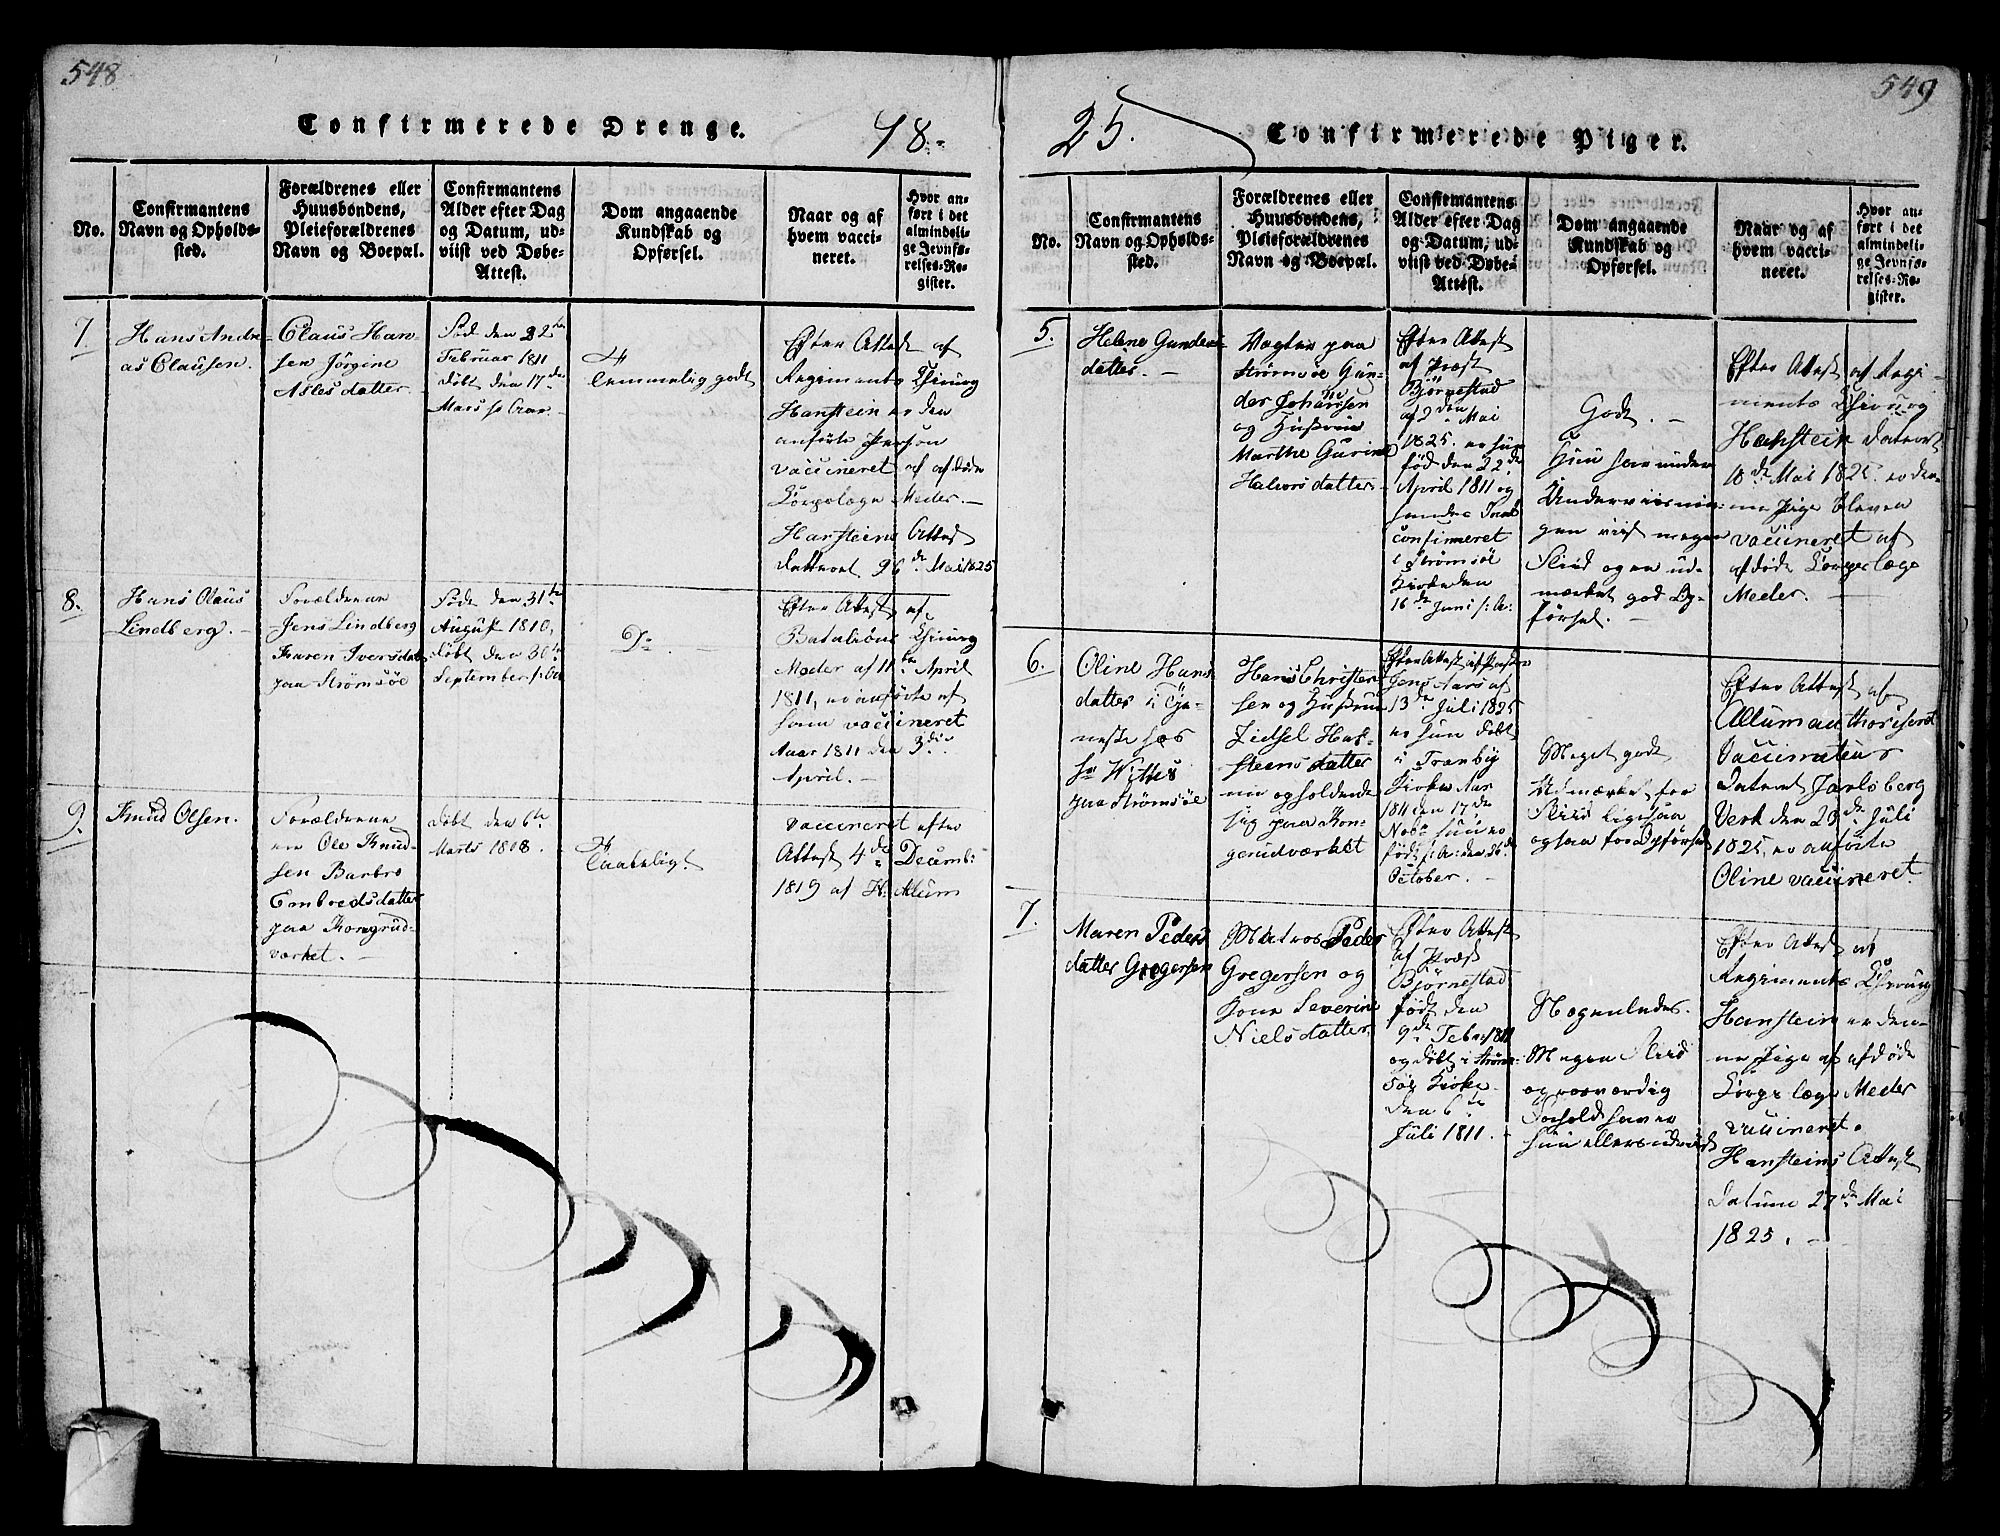 548
Confirmerede Drenge.
18
No.
Confirmantens
Navn og Opholds-
sted.
Forældrenes eller
Huusbondens,
Pleieforældrenes
Navn og Boepæl.
Confirmantens
Alder efter Dag
og Datum, ud-
viist ved Døbe-
Attest.
Dom angaaende
Kundskab og
Opførsel.
Naar og af
hvem vacci-
neret.
Hvor an-
ført i det
almindeli-
ge Jevnfø-
relses-Re-
gister.
7
Hans Andre-
as Clausen.
Claus Han
sen Jörgine
Asles datter.
Födt den 22de
Februar 1811
döbt den 17de
Mars s. Aar
temmelig godt
Efter Attest af
Regiments Chirurg
Hanstein er den
anförte Person
vaccineret af afdöde
Corpslæge Meder. —
Hansteins Attest
datteret 26de Mai 1825
8.
Hans Claus
Lindberg. —
Forældrene
Jens Lindberg
Karen Iversdat
paa Strömsöe
Födt den 31te
August 1810,
döbt den 30te
September s: Aar
Do
Efter Attest af
Batalions Chirurg
Meder af 11te April
1811, er anförte af
ham vaccineret
Aar 1811 den 3die
April. —
9.
Knud Olsen.
Forældrene
er Ole Knud-
sen Barbro
Embredsdatter
paa Kongrud-
værket. —
döbt den 6te
Marts 1808.
Taaleligt
vaccineret efter
Attest 4de Decemb:
1819 af H. Alum
549
25.
Confirmerede Piger.
No.
Confirmantens
Navn og Opholds-
sted.
Forældrenes eller
Huusbondens,
Pleieforældrenes
Navn og Boepæl.
Confirmantens
Alder efter Dag
og Datum, ud-
viist ved Døbe-
Attest.
Dom angaaende
Kundskab og
Opførsel.
Naar og af
hvem vacci-
neret.
Hvor an-
ført i det
almindeli-
ge Jevnfø-
relses-Re-
gister.
5.
Helene Gunders-
datter. —
Vægter paa
Strömsöe Gun-
der Johannsen
og Hustrue
Marthe Gurine
Halvorsdatter
Efter Attest
af Præst
Björnestad
af 2den Mai
1825. er hun
föd den 22de
April 1811 og
confirmeret
i Strömsöe
Kirke den
16de Juni s: A:
Godt. —
Hun har under
Underviisnin-
gen viist megen
Fliid og en ud-
mærket god Op-
försel. —
Efter Attest af Regi-
ments Chirurg
Hanstein dateret
18de Mai 1825. er den-
ne Pige bleven
vaccineret af
afdöde Corpslæge
Meder. —
6.
Oline Hans
datter i Tje-
neste hos
Hr Wittes
paa Strömsöe
Hans Christen
sen og Hustrue
Zidsel Hal-
steensdatter
nu opholdende
sig paa Kon-
gerudværket
Efter Attest af Præsten
Jens Aars af
13de Juli 1825
er hun döbt
i Tranby
Kirke Aar
1811 den 17de
Nobr hun er
födt s: A: den 26de
October. —
Meget godt
Udmærket for
Fliid ligesaa
ogsaa for Opförsel
Efter Attest af
Allum authoriseret
Vaccinateur
dateret Jarlsberg
Verk den 23de Juli
1825, er anförte
Oline vaccineret.
7.
Maren Peders
datter Gregersen
Matros Peder
Gregersen og
Kone Severine
Nielsdatter.
Efter Attest
af Præst
Björnestad
födt den
9de Febr: 1811
og döbt i Ström-
söe Kirke
den 6te
Juli 1811. —
Nogenledes.
Megen Fliid
og roesværdig
Forhold haver
hun ellers udviist
Efter Attest af
Regiments Chirurg
Hanstein er den-
ne Pige af afdöde
Corps læge Meder
vaccineret.
Hansteins Attest
Datum 27de Mai
1825. —